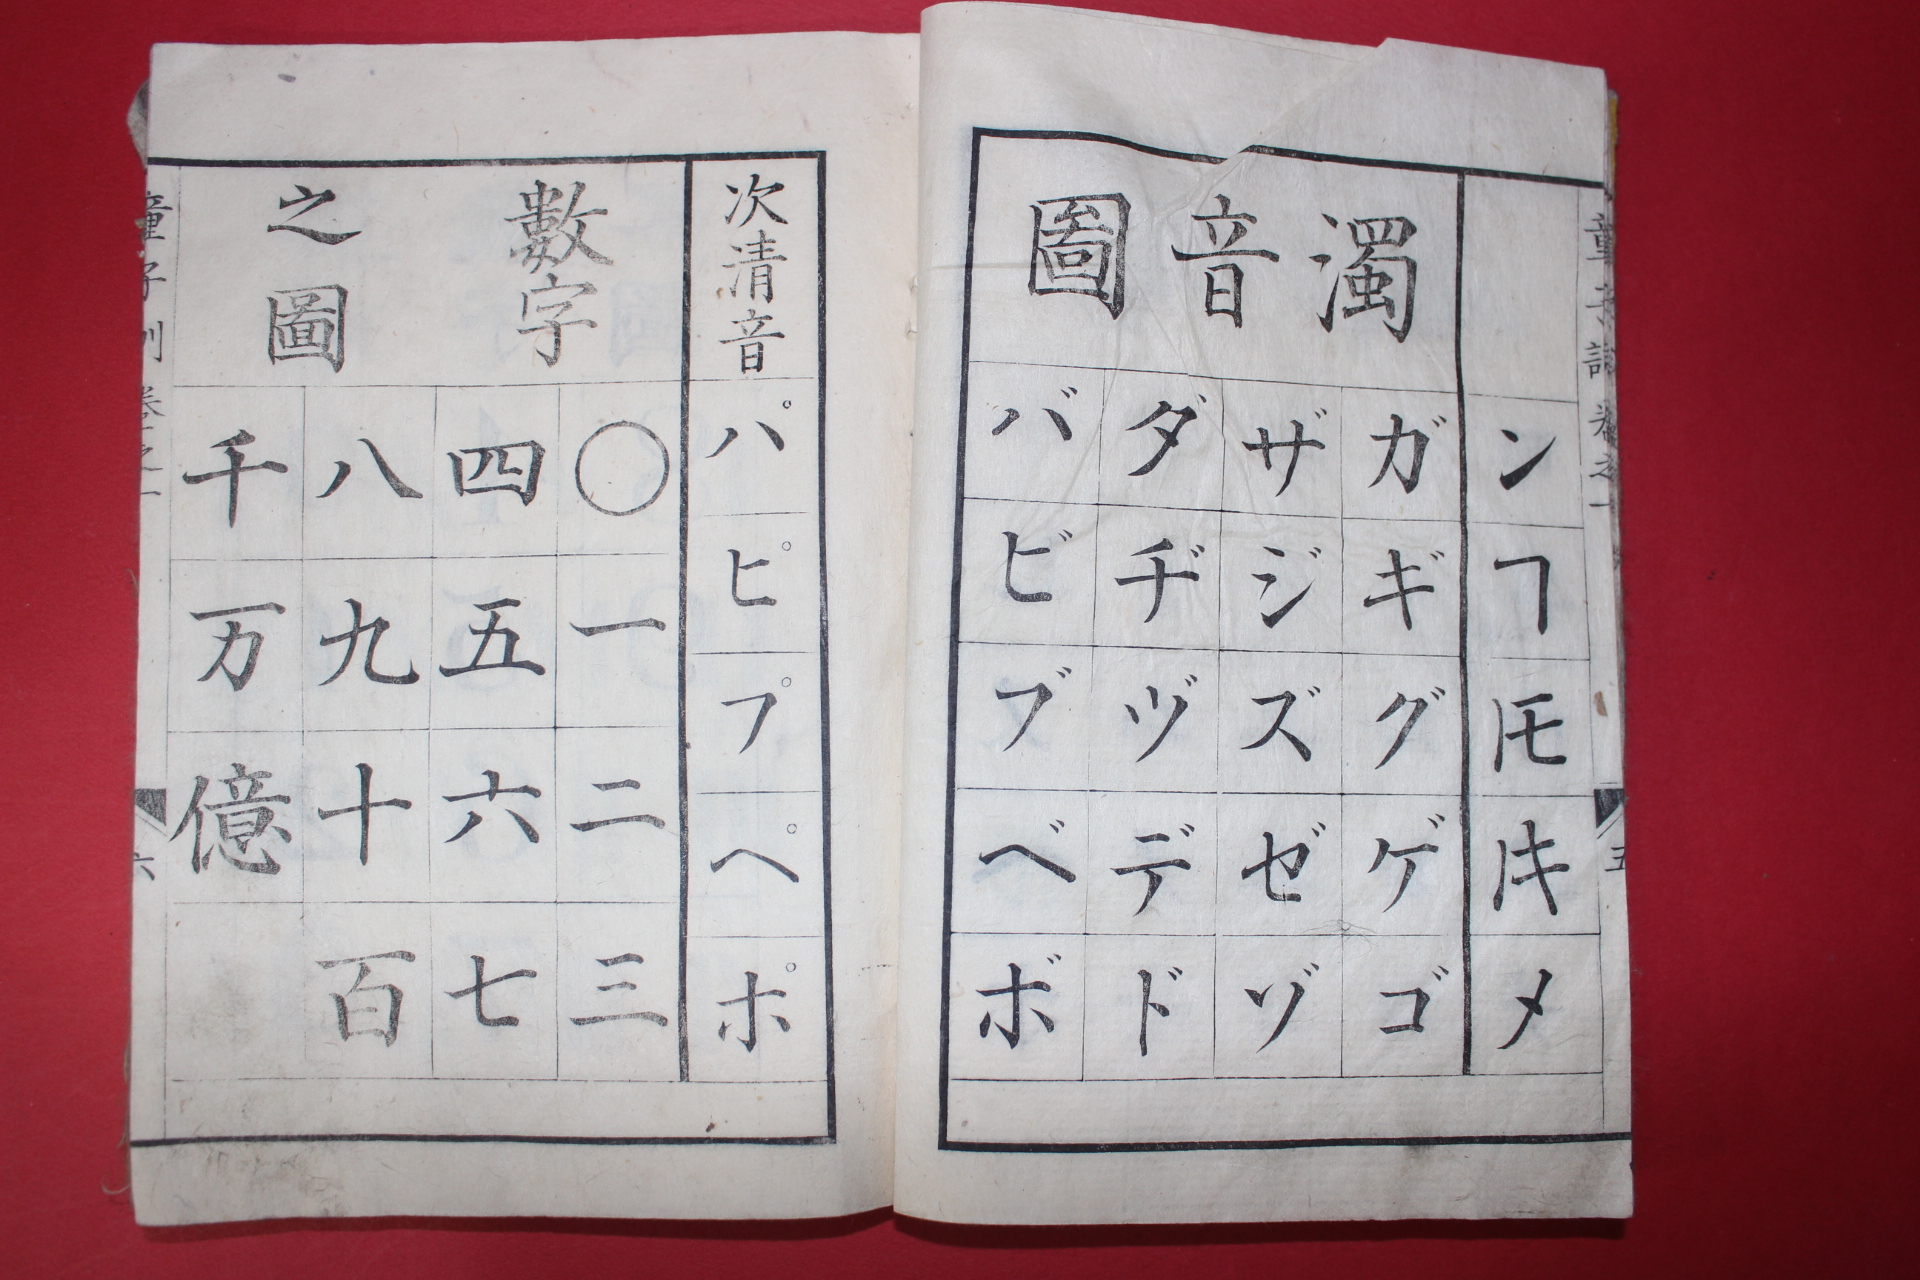 童子訓 巻之一 五
ンヿ𪜈トキメ
濁音圖
ガギグゲゴ
ザジズゼゾ
ダヂヅデド
バビブベボ
次清音
パピプペポ
數字
之圖
〇一二三
四五六七
八九十百
千万億
童子訓 巻之一 六